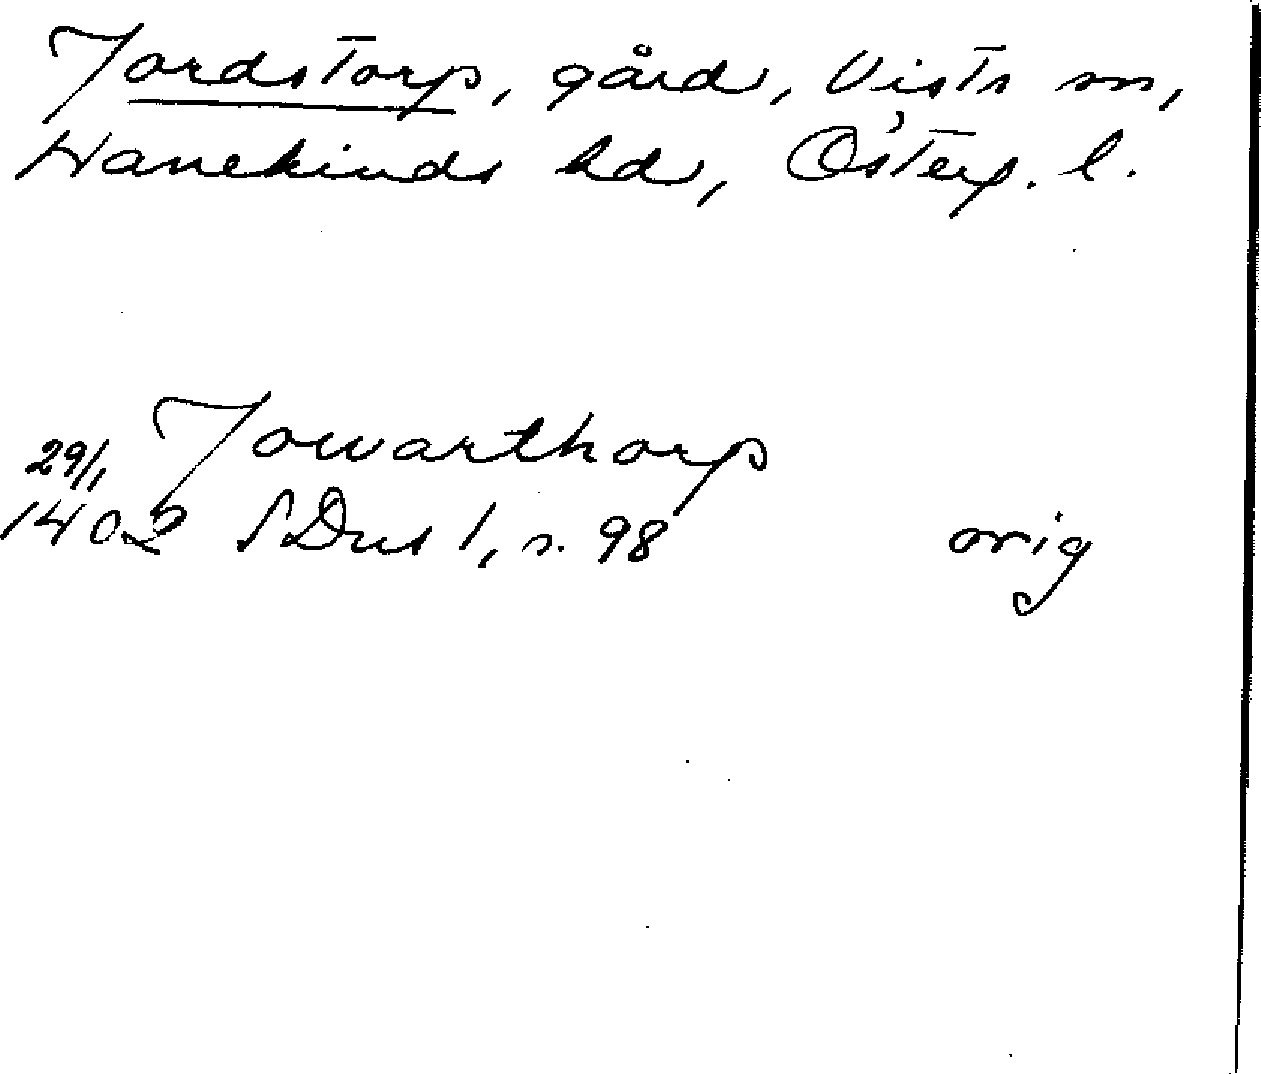 Jordstorp, gård, Vists sn,
Hanekinds hd, Österg. l.
Jowarthorp
29/1
1402 SDns 1, s. 98 orig